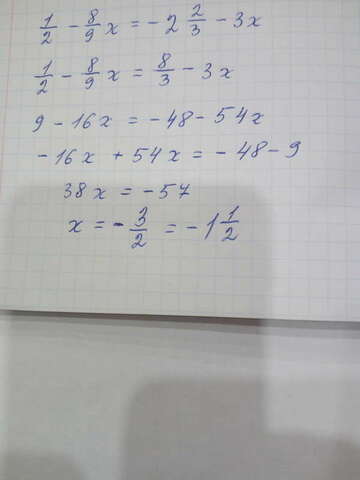 1/2 - 8/9 x = - 2 2/3 - 3x
1/2 - 8/9 x = 8/3 - 3x
9 - 16x = -48 - 54x
-16x + 54x = -48 - 9
38x = -57
x = - 3/2 = -1 1/2